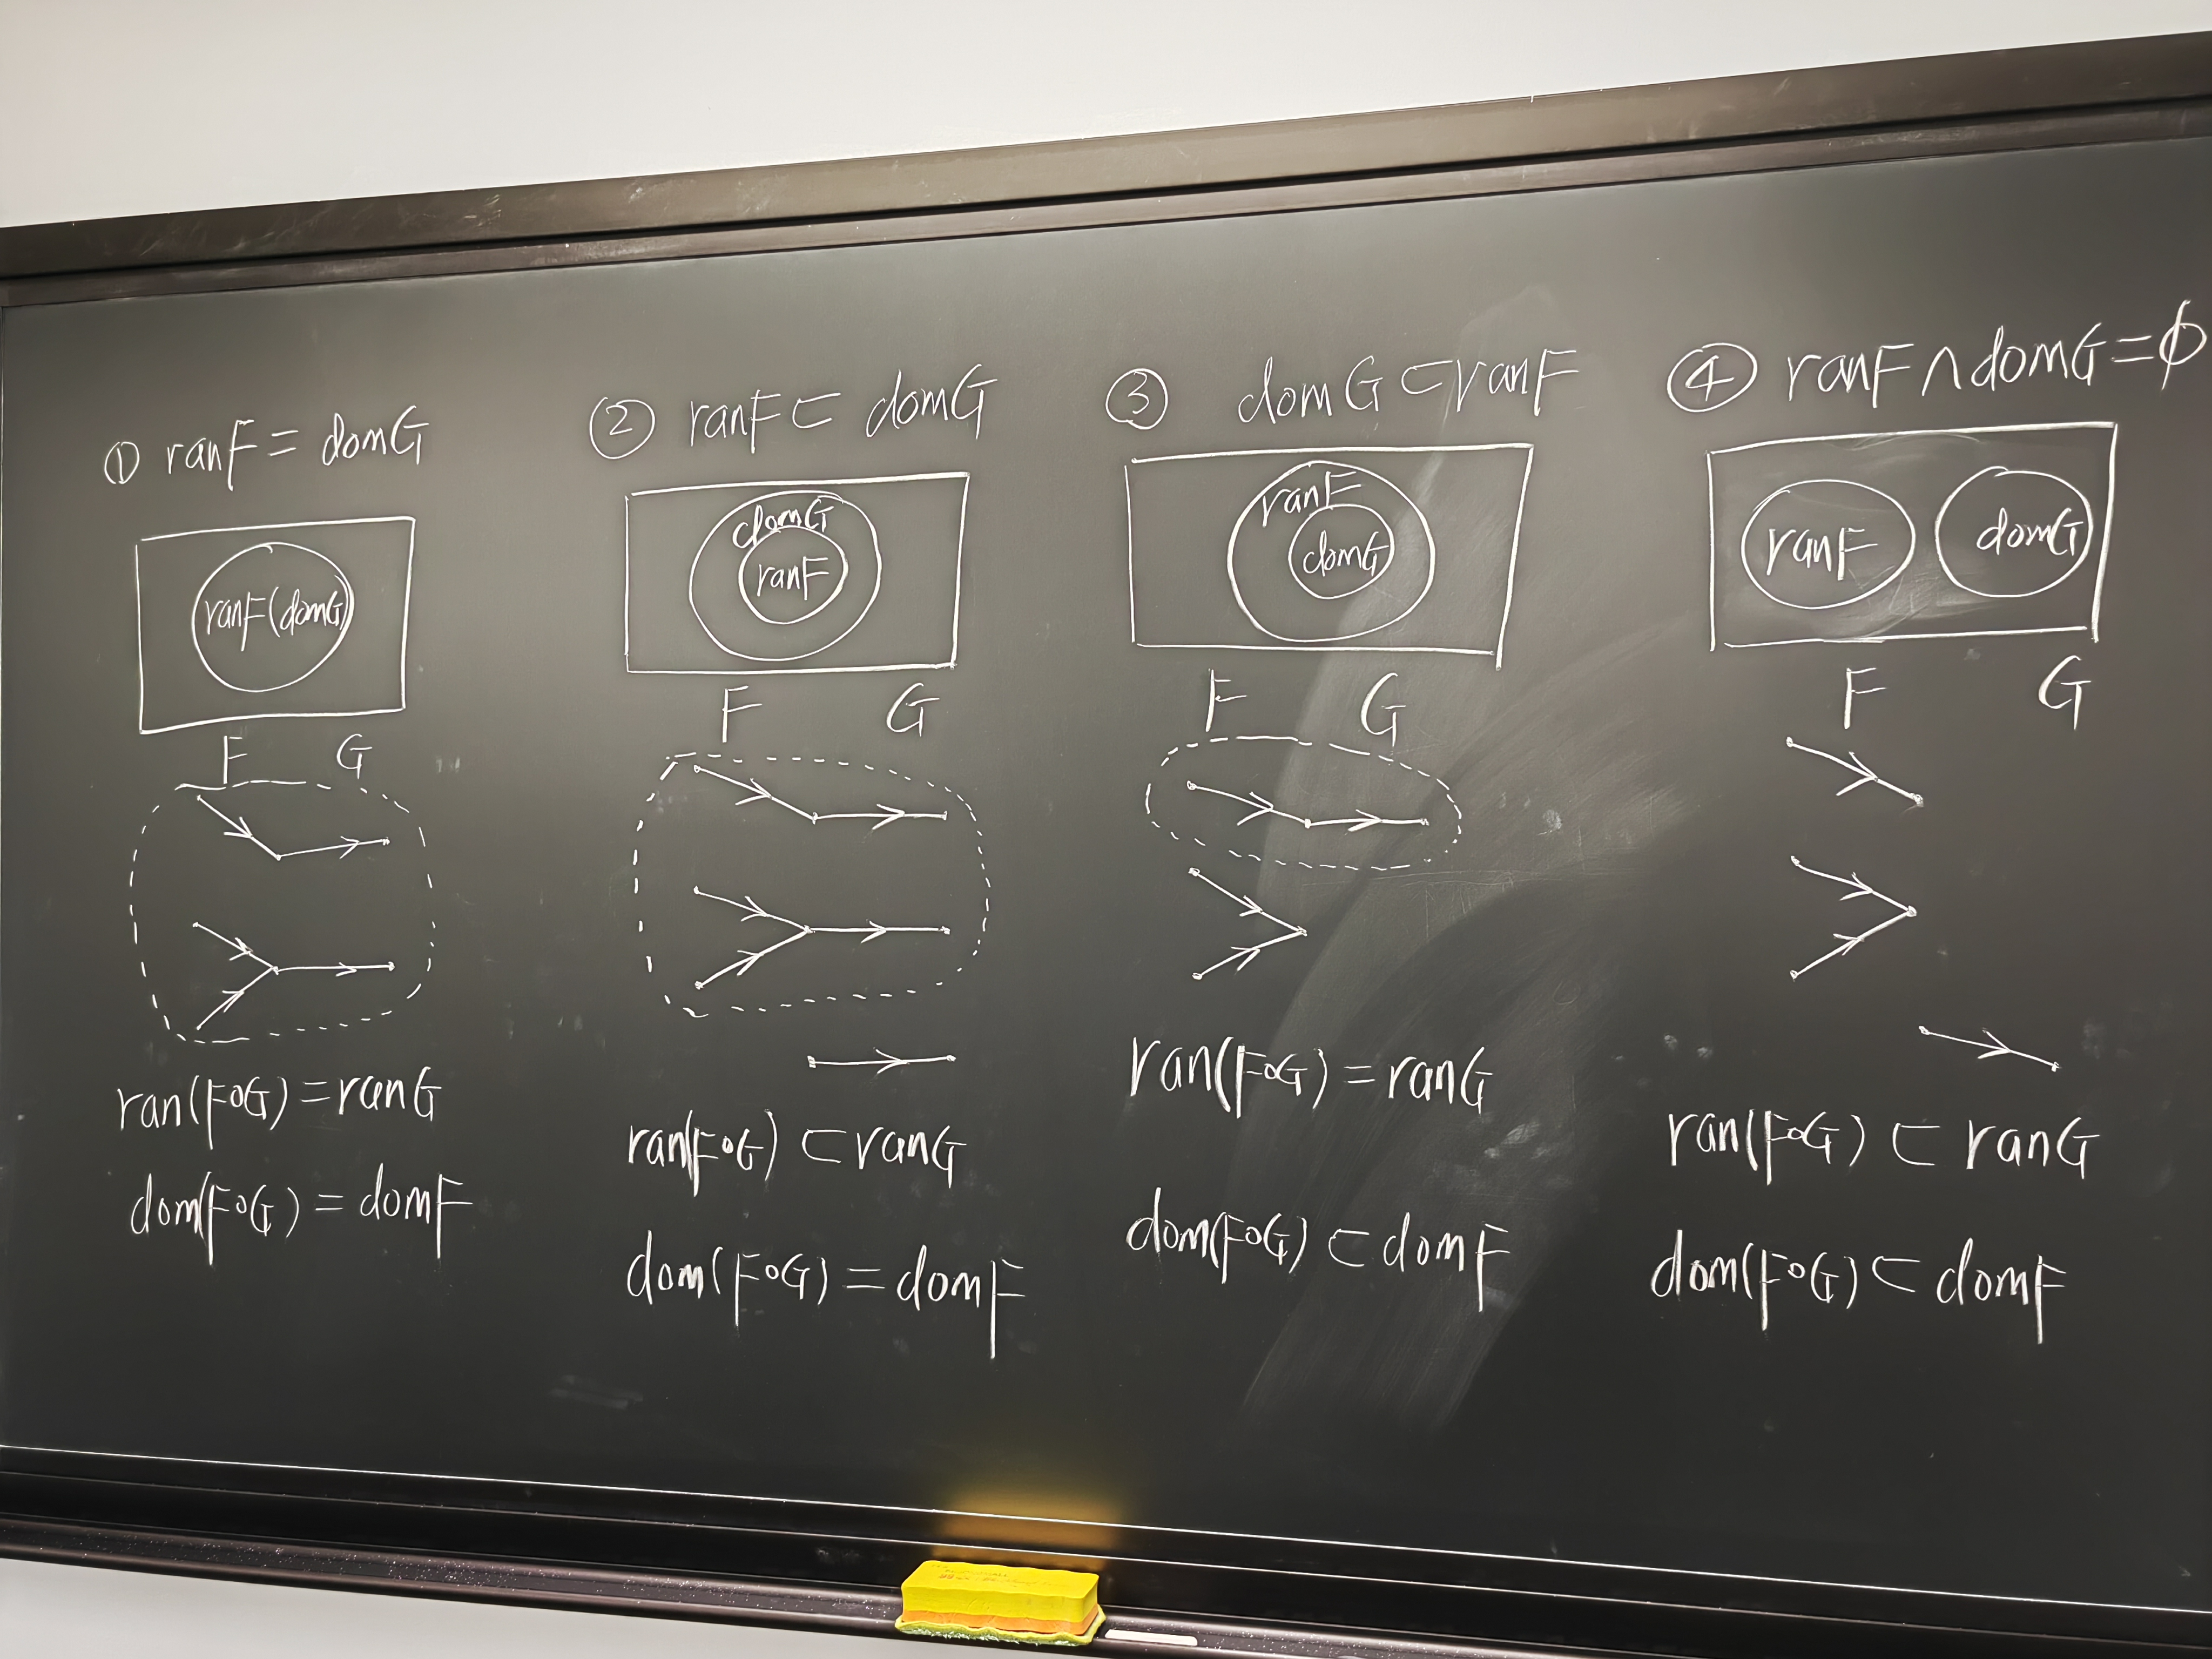 ① ranF = domG
ranF(domG)
F G
ran(F∘G) = ranG
dom(F∘G) = domF
② ranF ⊂ domG
domG
ranF
F G
ran(F∘G) ⊂ ranG
dom(F∘G) = domF
③ domG ⊂ ranF
ranF
domG
F G
ran(F∘G) = ranG
dom(F∘G) ⊂ domF
④ ranF ∩ domG = ϕ
ranF domG
F G
ran(F∘G) ⊂ ranG
dom(F∘G) ⊂ domF